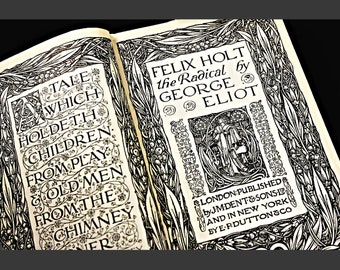 A TALE
WHICH
HOLDETH
CHILDREN
FROM PLAY
& OLD MEN
FROM THE
CHIMNEY
FELIX HOLT
the Radical by
GEORGE
ELIOT
LONDON: PUBLISHED
by J.M.DENT & SONS LTD
AND IN NEW YORK
BY E.P. DUTTON & CO